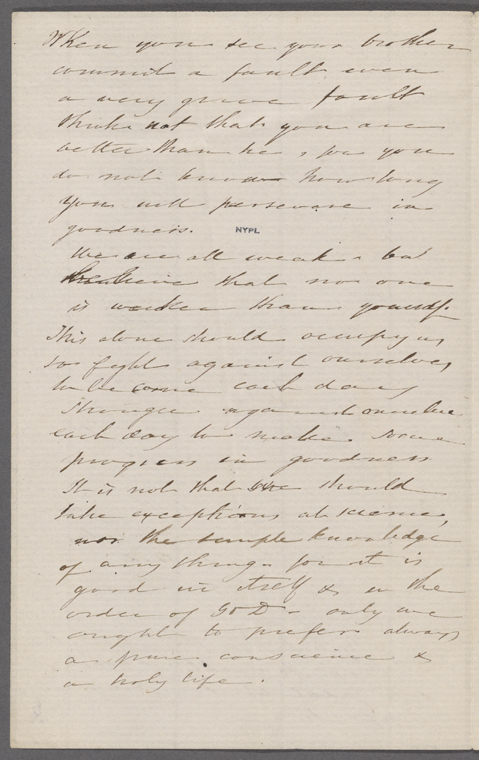 When you see your brother
commit a fault even
a very grave fault
think not that you are
better than he, for you
do not know how long
you will persevere in
goodness.
NYPL
We are all weak, but
believe that no one
is weaker than yourself.
This alone should occupy us
to fight against ourselves
to become each day
stronger against ourselves
each day to make some
progress in goodness
It is not that we should
take exceptions at science,
nor the simple knowledge
of any thing, for it is
good in itself & in the
order of GOD - only we
ought to prefer always
a pure conscience &
a holy life.